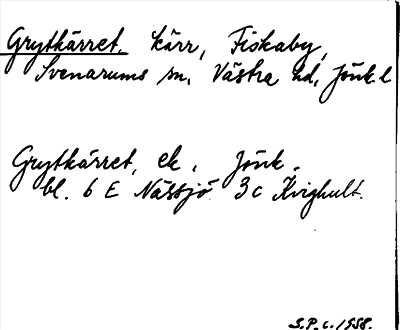 Grytkärret, kärr, Fiskaby,
Svenarums sn, Västra hd, Jönk. l
Grytkärret, ek, Jönk.
bl. 6 E Nässjö 3 c Kvighult.
S.P.c. 1958.